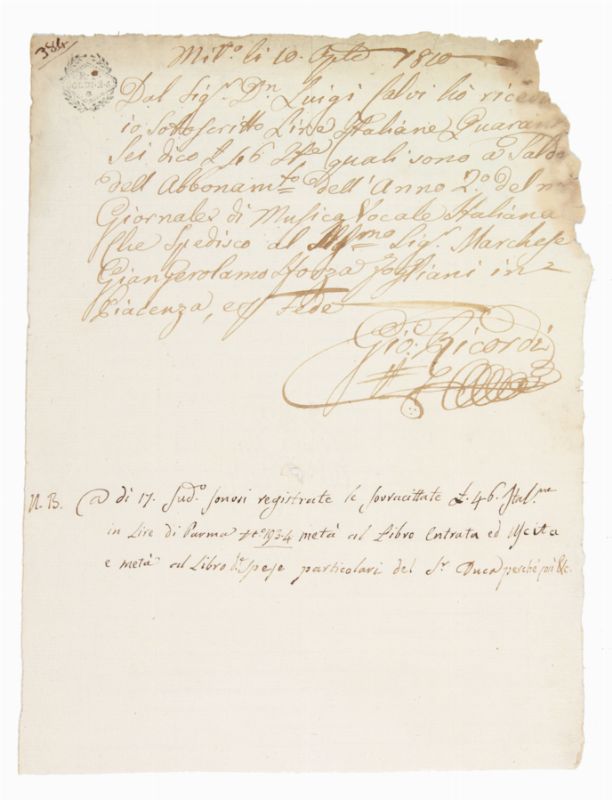 384
Mil.º li 10. 1810
Dal Sig.r D.n Luigi Salvi hò
io Sottoscritto Lire Italiane
Sei dico £ 46 It.e quali sono a Saldo
dell'Abbonam.to dell'Anno 2.º del
Giornale di Musica Vocale Italiana
Che Spedisco al Ill.mo Sig.r Marchese
Gian Gerolamo Sforza Fogliani in
Piacenza, Fede
Gio: Ricordi
N. B. @ di 17. Sud.º sonosi registrate le sovracittate £. 46. Ital.ne
in Lire di Parma metà al Libro Entrata ed Uscita
e metà al Libro Spese particolari del S.r Duca perchè